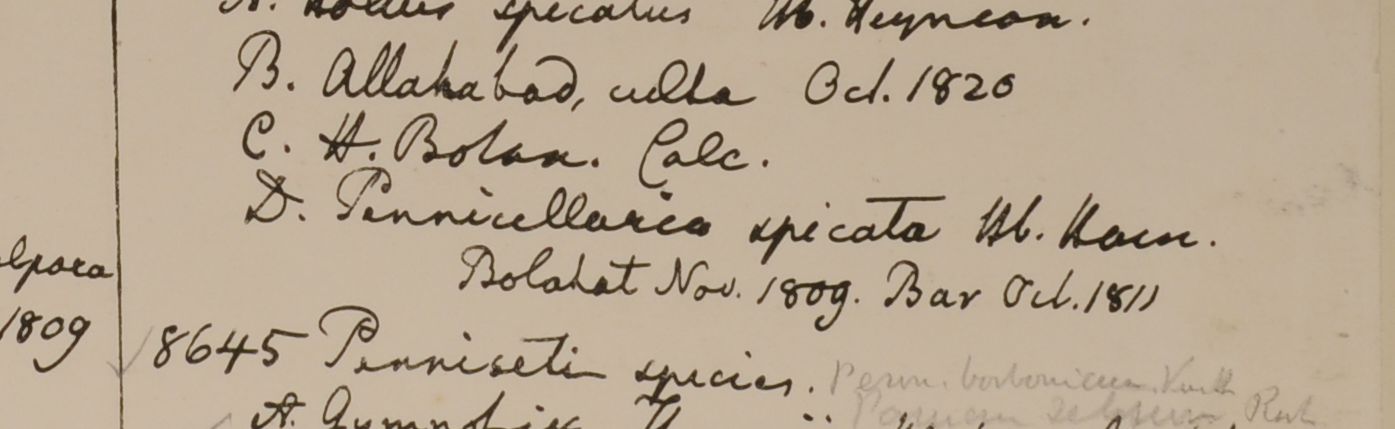 A. Holcus spicatus Hb. Heynean.
B. Allahabad, culta Oct. 1820
C. H. Botan. Calc.
D. Pennicellaria spicata Hb. Ham.
Bolahat Nov. 1809. Bar Oct. 1811
lpara
1809
8645 Penniseti species. Penn. borbonicum Kunth
A. Gymnothrix